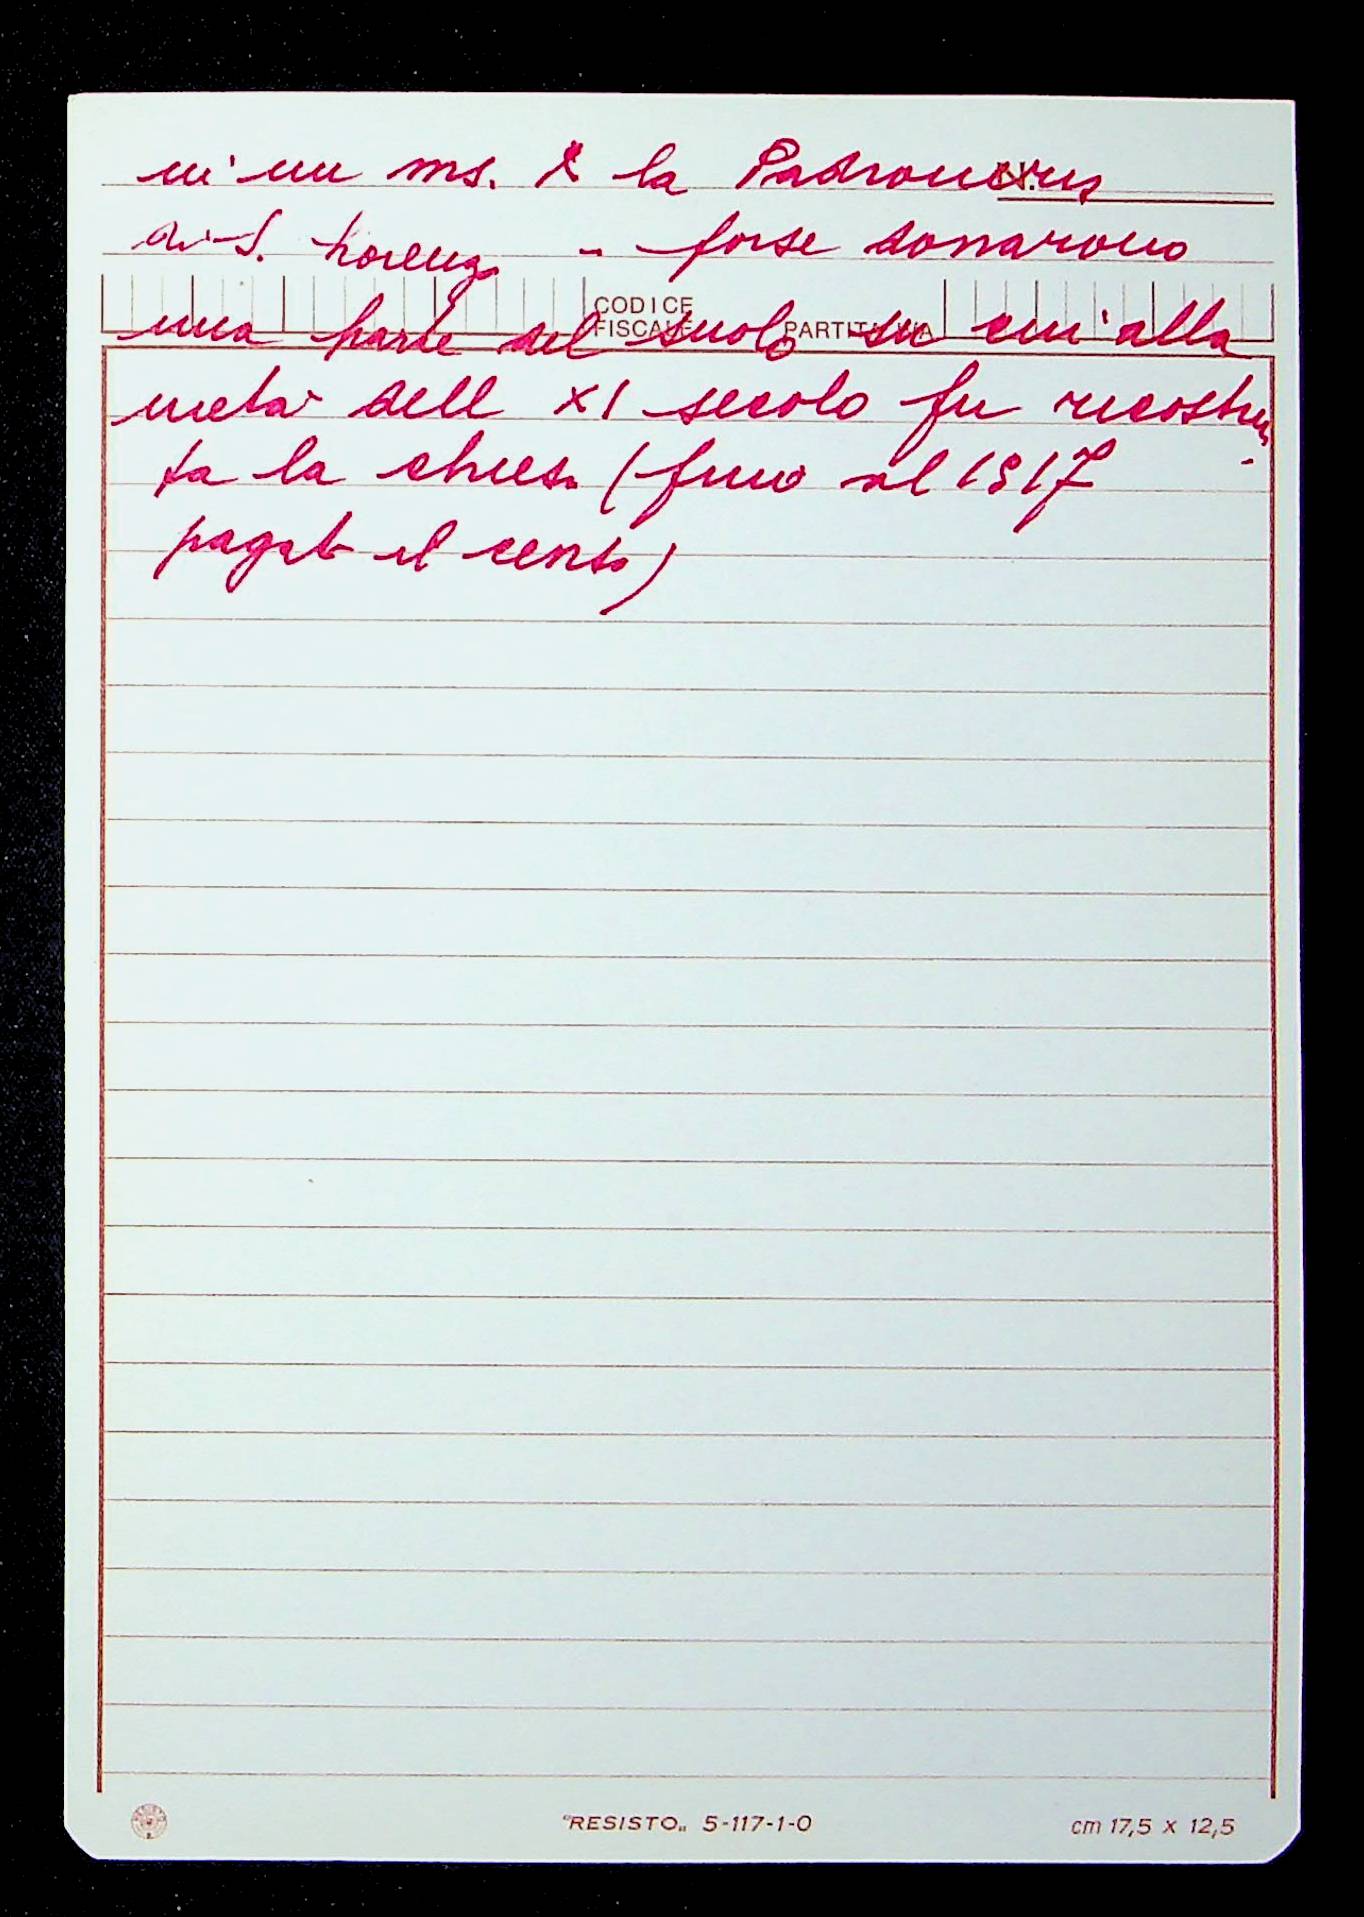 in un ms. & la Padronanza
di S. Lorenzo - forse donarono
CODICE
FISCALE PARTITA IVA
una parte del suolo su cui alla
metà dell XI secolo fu ricostrui
ta la chiesa (fino al 1517
pagato il censo)
"RESISTO" 5-117-1-0 cm 17,5 x 12,5